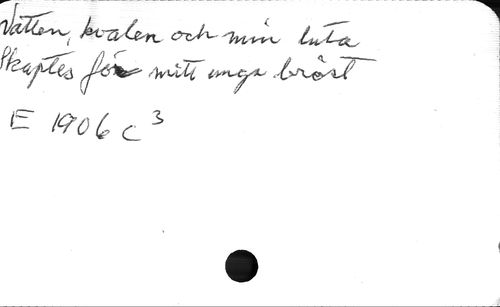 Natten, kvalen och min luta
Skaptes för mitt unga bröst
E 1906 c³